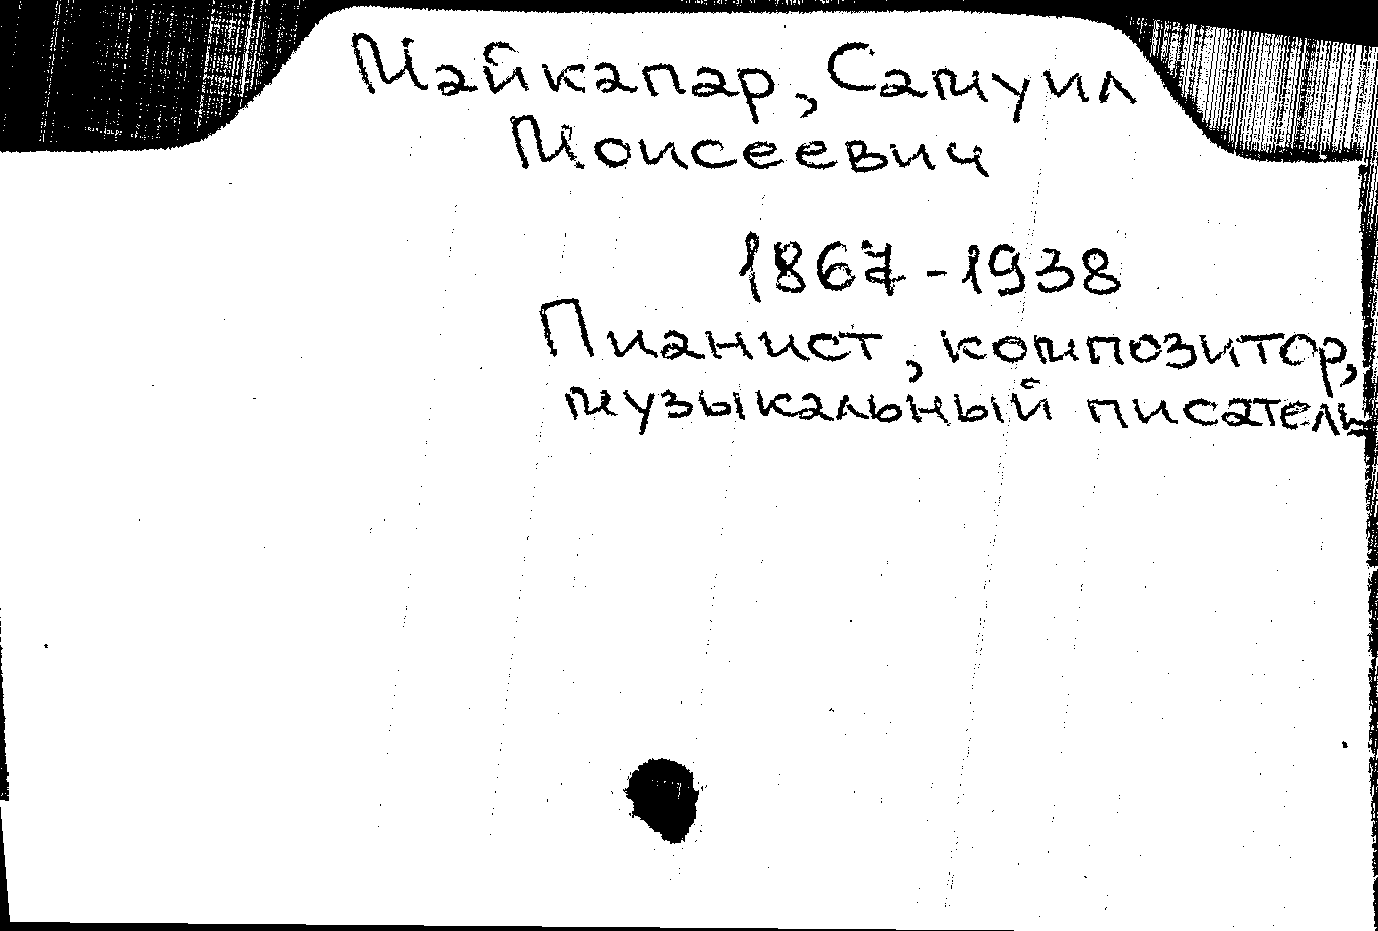 Майкапар, Самуил
Моисеевич
1867-1938
Пианист, композитор,
музыкальный писатель